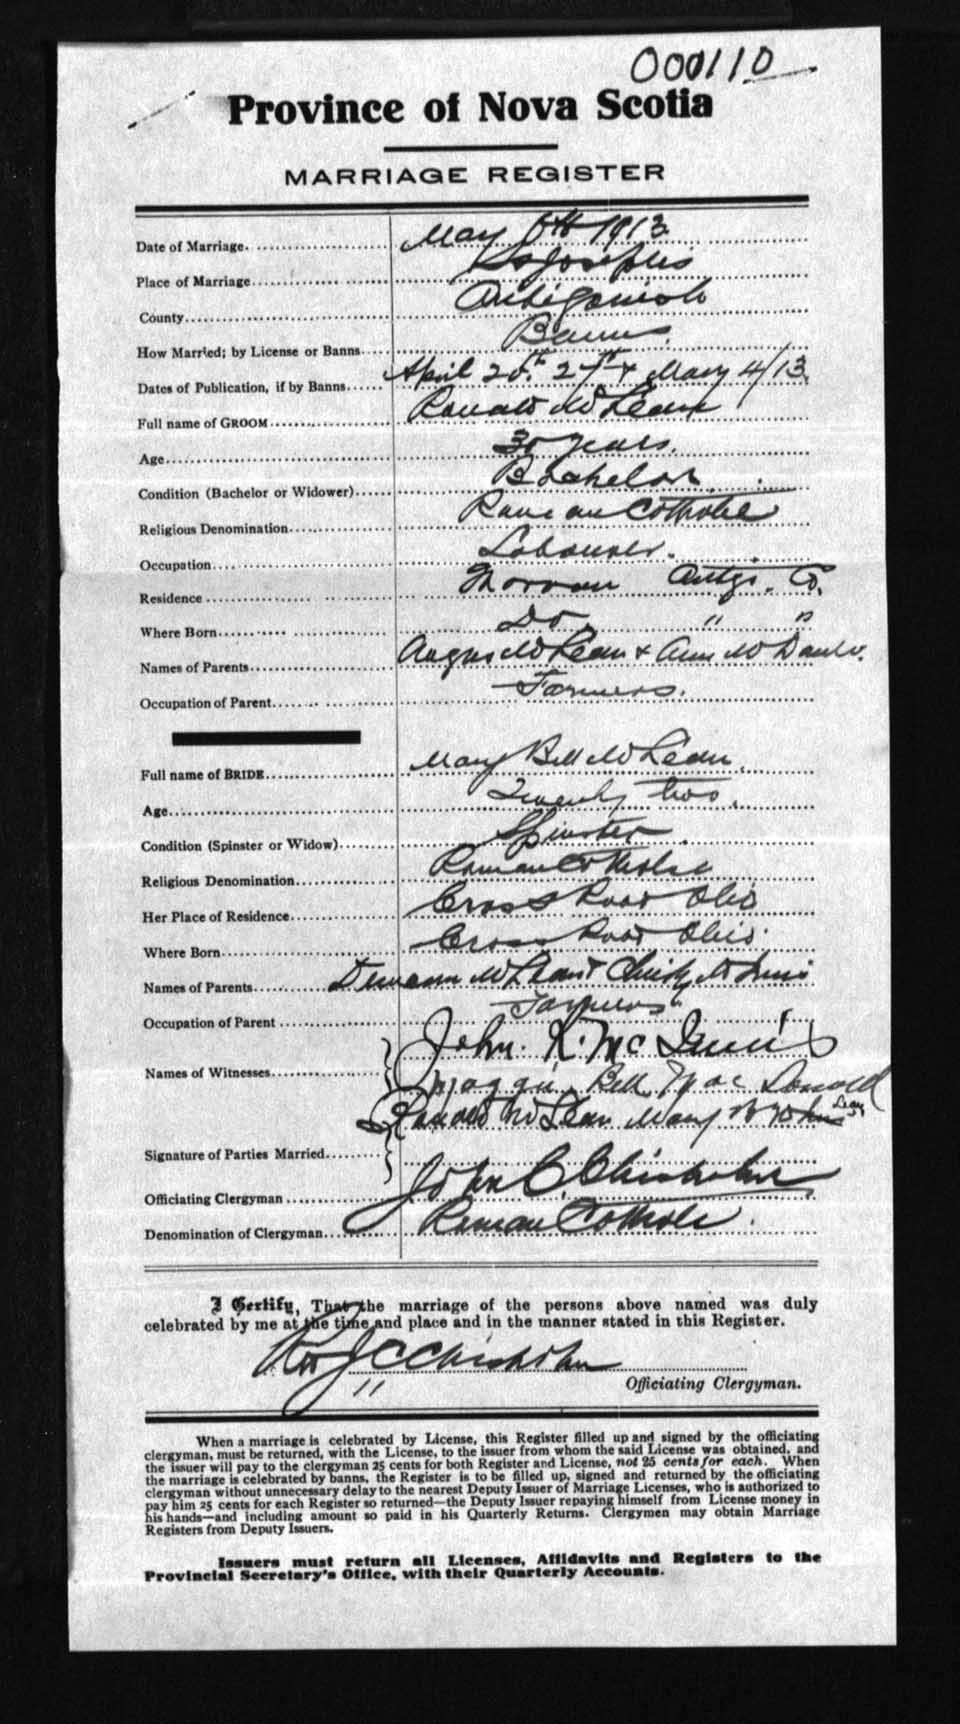 000110
Province of Nova Scotia
MARRIAGE REGISTER
Date of Marriage May 6th 1913
Place of Marriage St Josephs
County Antigonish
How Married; by License or Banns Banns.
Dates of Publication, if by Banns April 20th. 27th & May 4/13
Full name of GROOM Ronald McLean
Age 30 years.
Condition (Bachelor or Widower) Bachelor
Religious Denomination Roman Catholic
Occupation Labourer.
Residence Morvan Antg. Co.
Where Born Do " "
Names of Parents Angus McLean & Ann McDonald.
Occupation of Parent Farmers.
Full name of BRIDE Mary Bell McLean.
Age Twenty two.
Condition (Spinster or Widow) Spinster
Religious Denomination Roman Catholic
Her Place of Residence Cross Road Ohio
Where Born Cross Road Ohio.
Names of Parents McLean & Christy McInnis
Occupation of Parent Farmers
Names of Witnesses John. K. McInnis
Maggie Bell MacDonald
Ronald McLean Mary B McLean
Signature of Parties Married
Officiating Clergyman John C. Chisholm
Denomination of Clergyman Roman Catholic.
I Certify, That the marriage of the persons above named was duly
celebrated by me at the time and place and in the manner stated in this Register.
Rev J C Chisholm
Officiating Clergyman.
When a marriage is celebrated by License, this Register filled up and signed by the officiating
clergyman, must be returned, with the License, to the issuer from whom the said License was obtained, and
the issuer will pay to the clergyman 25 cents for both Register and License, not 25 cents for each. When
the marriage is celebrated by banns, the Register is to be filled up, signed and returned by the officiating
clergyman without unnecessary delay to the nearest Deputy Issuer of Marriage Licenses, who is authorized to
pay him 25 cents for each Register so returned—the Deputy Issuer repaying himself from License money in
his hands—and including amount so paid in his Quarterly Returns. Clergymen may obtain Marriage
Registers from Deputy Issuers.
Issuers must return all Licenses, Affidavits and Registers to the
Provincial Secretary's Office, with their Quarterly Accounts.